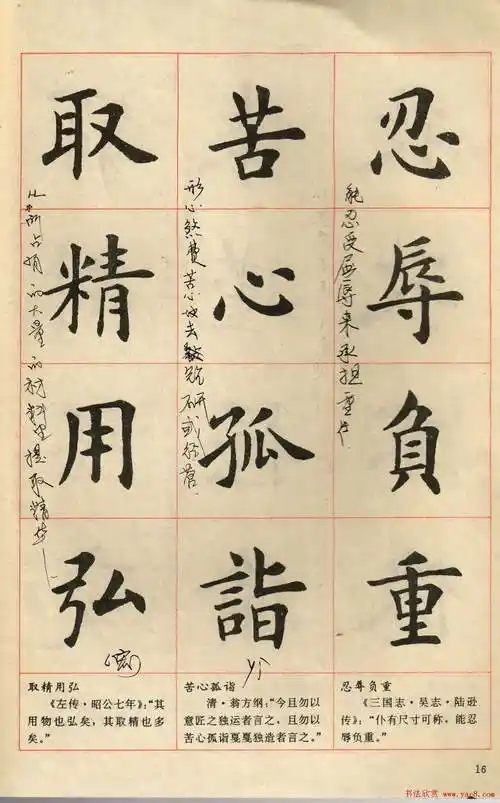 忍辱负重
苦心孤詣
取精用弘
能忍受屈辱来承担重任
形心煞费苦心地去钻研或经营.
从所占有的大量的材料里提取精华
(宏)
忍辱负重
《三国志·吴志·陆逊
传》：“仆有尺寸可称，能忍
辱负重。”
苦心孤诣
清·翁方纲：“今且勿以
意匠之独运者言之，且勿以
苦心孤诣戛戛独造者言之。”
取精用弘
《左传·昭公七年》：“其
用物也弘矣，其取精也多
矣。”
16
书法欣赏
www.yac8.com